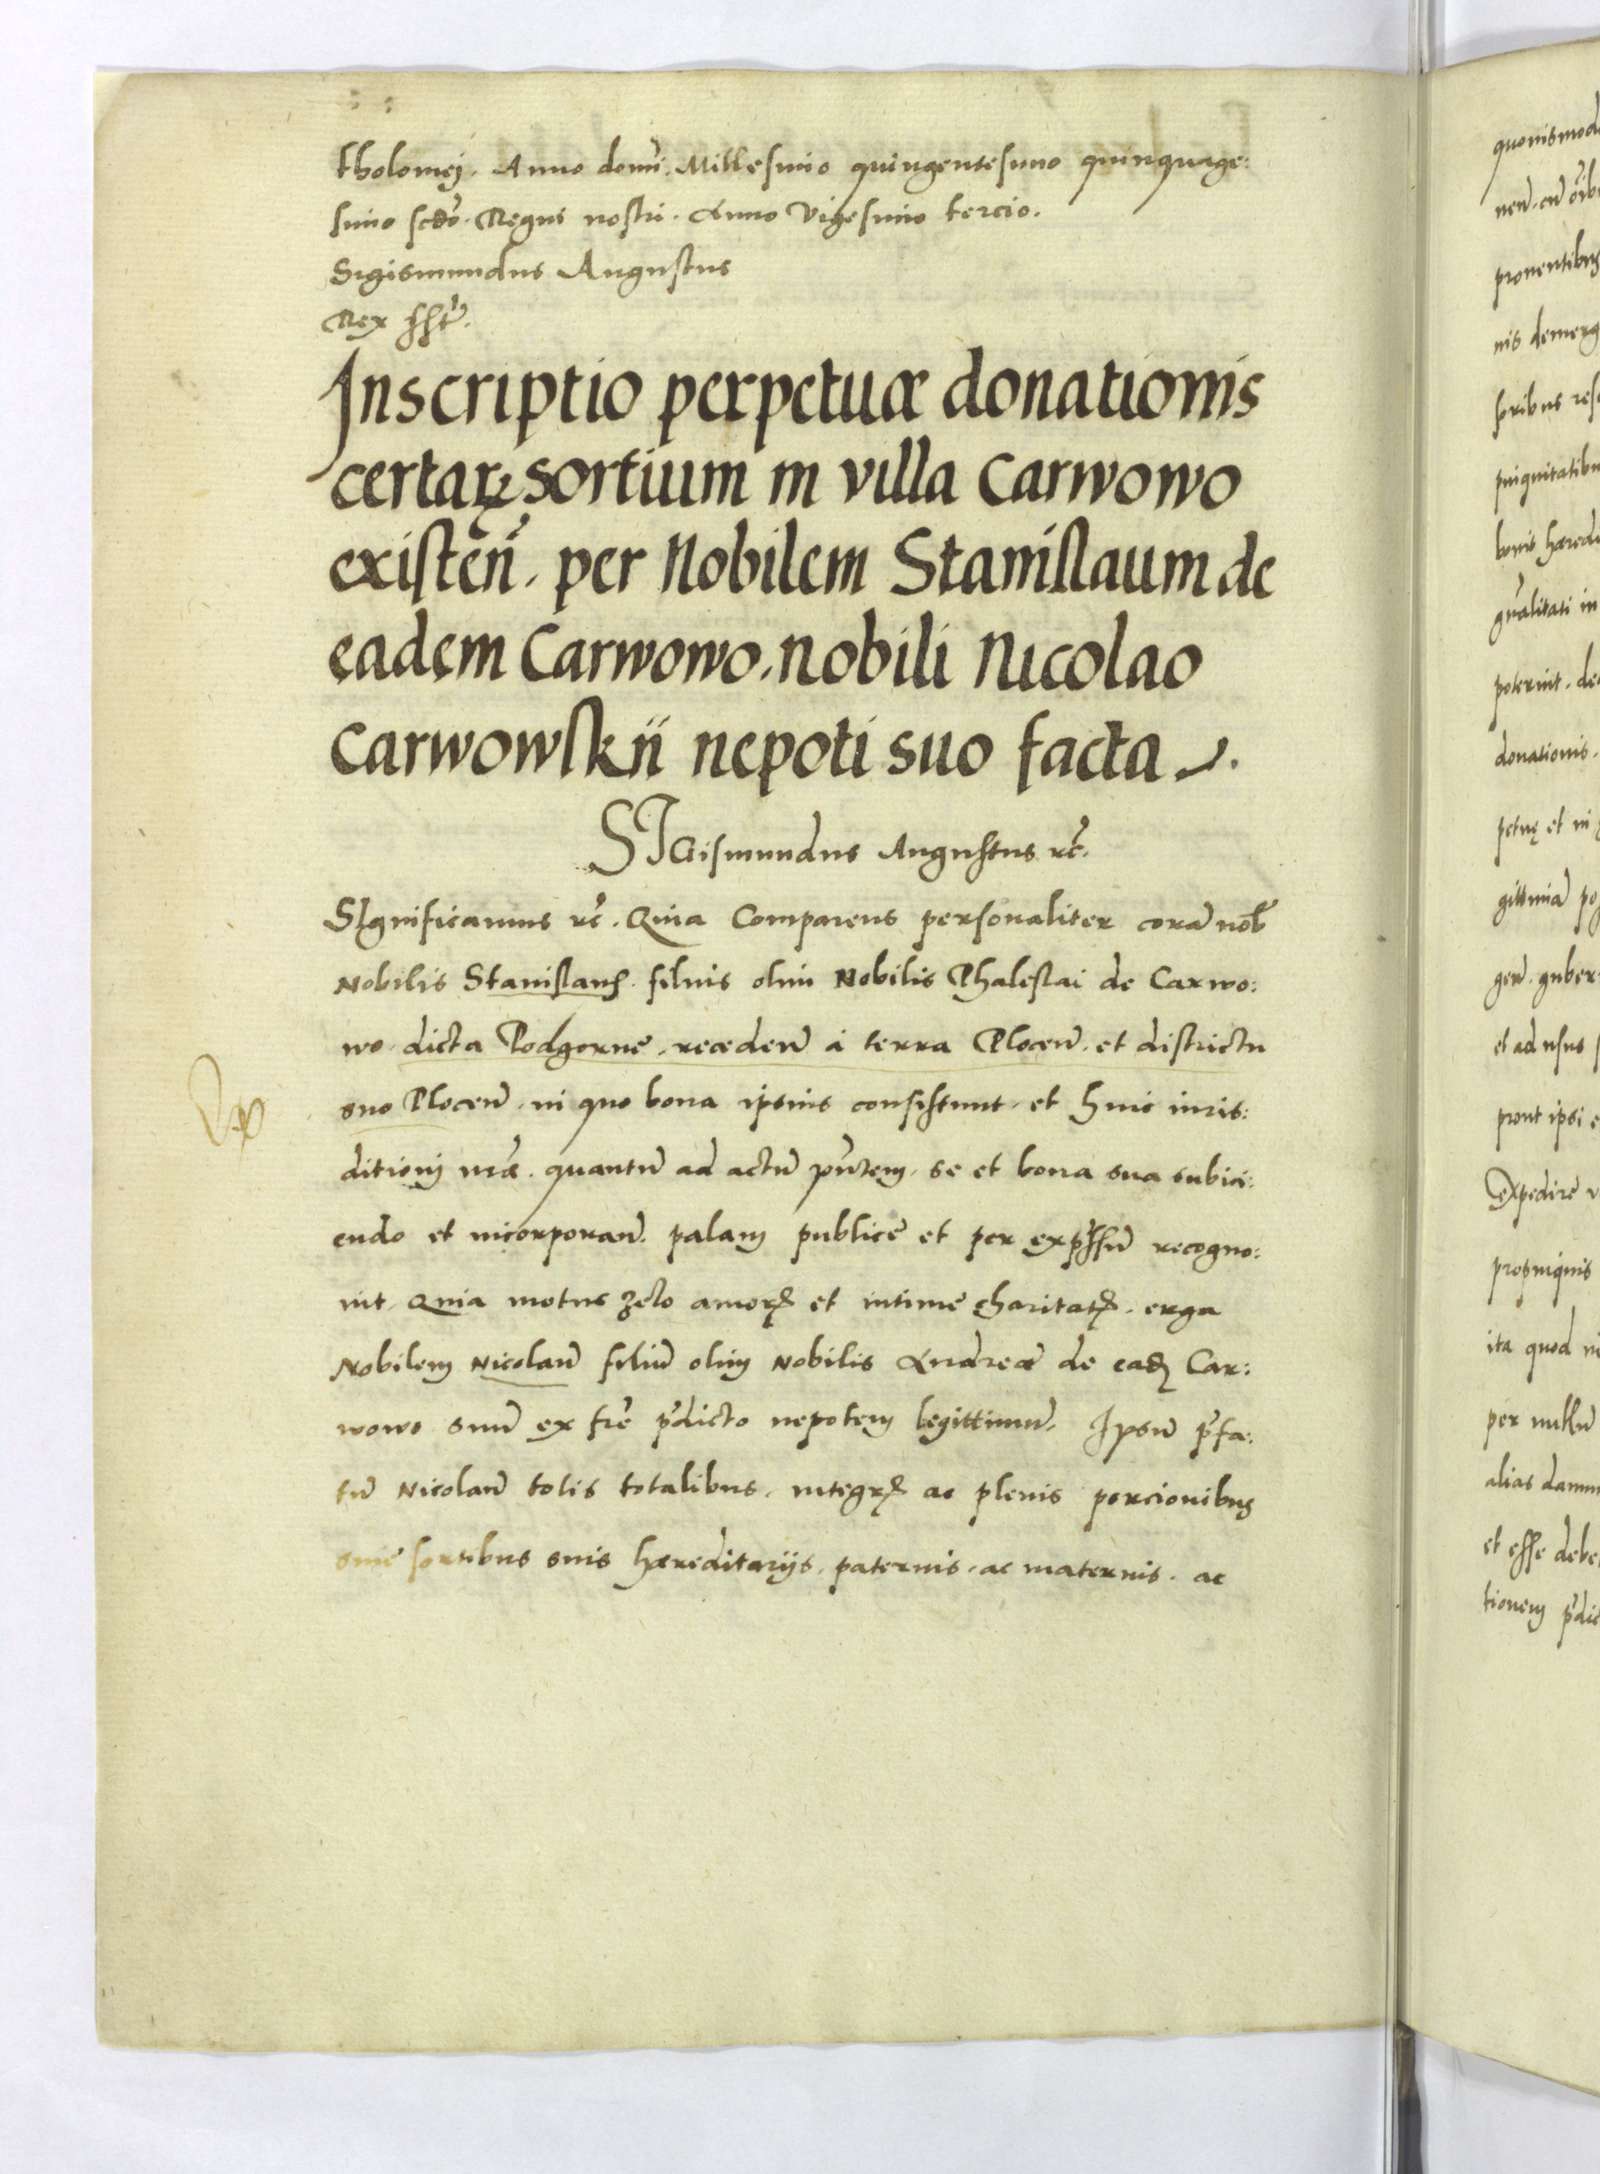 tholomej. Anno domi. Millesimo quingentesimo quinquage:
simo scdo. Regni nostri. Anno vigesimo tercio.
Sigismundus Augustus
Rex sst.
Inscriptio perpetuæ donationis
certarꝝ sortium in villa Carwowo
existen̄. per Nobilem Stanislaum de
eadem Carwowo. nobili Nicolao
Carwowskii nepoti suo facta
SIGismundus Augustus rc̄.
SIgnificamus rc̄. Quia Comparens personaliter corā nob̄
Nobilis Stanislaus. filius olim Nobilis Phaleslai de Carwo:
wo dicta Podgorne. receden̄ à terra Plocen̄. et districtu
suo Plocen̄. in quo bona ipsius consistunt. et huic iuris:
ditioni nr̄æ. quantū ad actū pn̄tem. se et bona sua subici:
endo et incorporan̄. palam publicē et per exp̄ssū recogno:
uit. Quia motus zelo amorꝭ et intimę charitatꝭ. erga
Nobilem Nicolaū filiū olim Nobilis Andreæ de eadꝫ Car:
wowo suū ex fr̄e p̄dicto nepotem legittimū. Ipsū p̄fa:
tū Nicolaū totis totalibus. integrꝭ ac plenis porcionibus
siue sortibus suis hæreditarijs. paternis. ac maternis. ac
quouismod
nen̄. cū oīb
prouentibus
nis demerg
soribus res
puiguitatibu
bonis hæred
gn̄alitati in
poterint. de
donationis.
petuę et in
gittimā po
gen̄. guber
et ad usus
prout ipsi e
Expedire v
propinquis
ita quod ni
per nullū
alias damn
et esse debe
tionem p̄dic